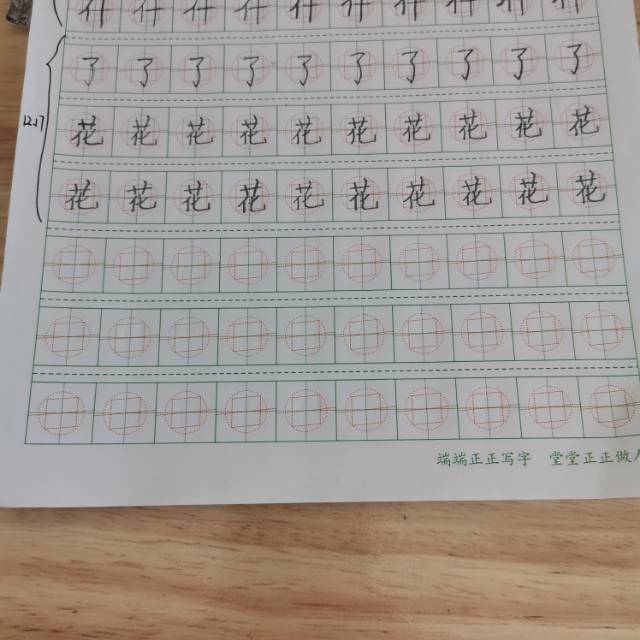 了了了了了了了了了了
花花花花花花花花花花
花花花花花花花花花花
端端正正写字 堂堂正正做